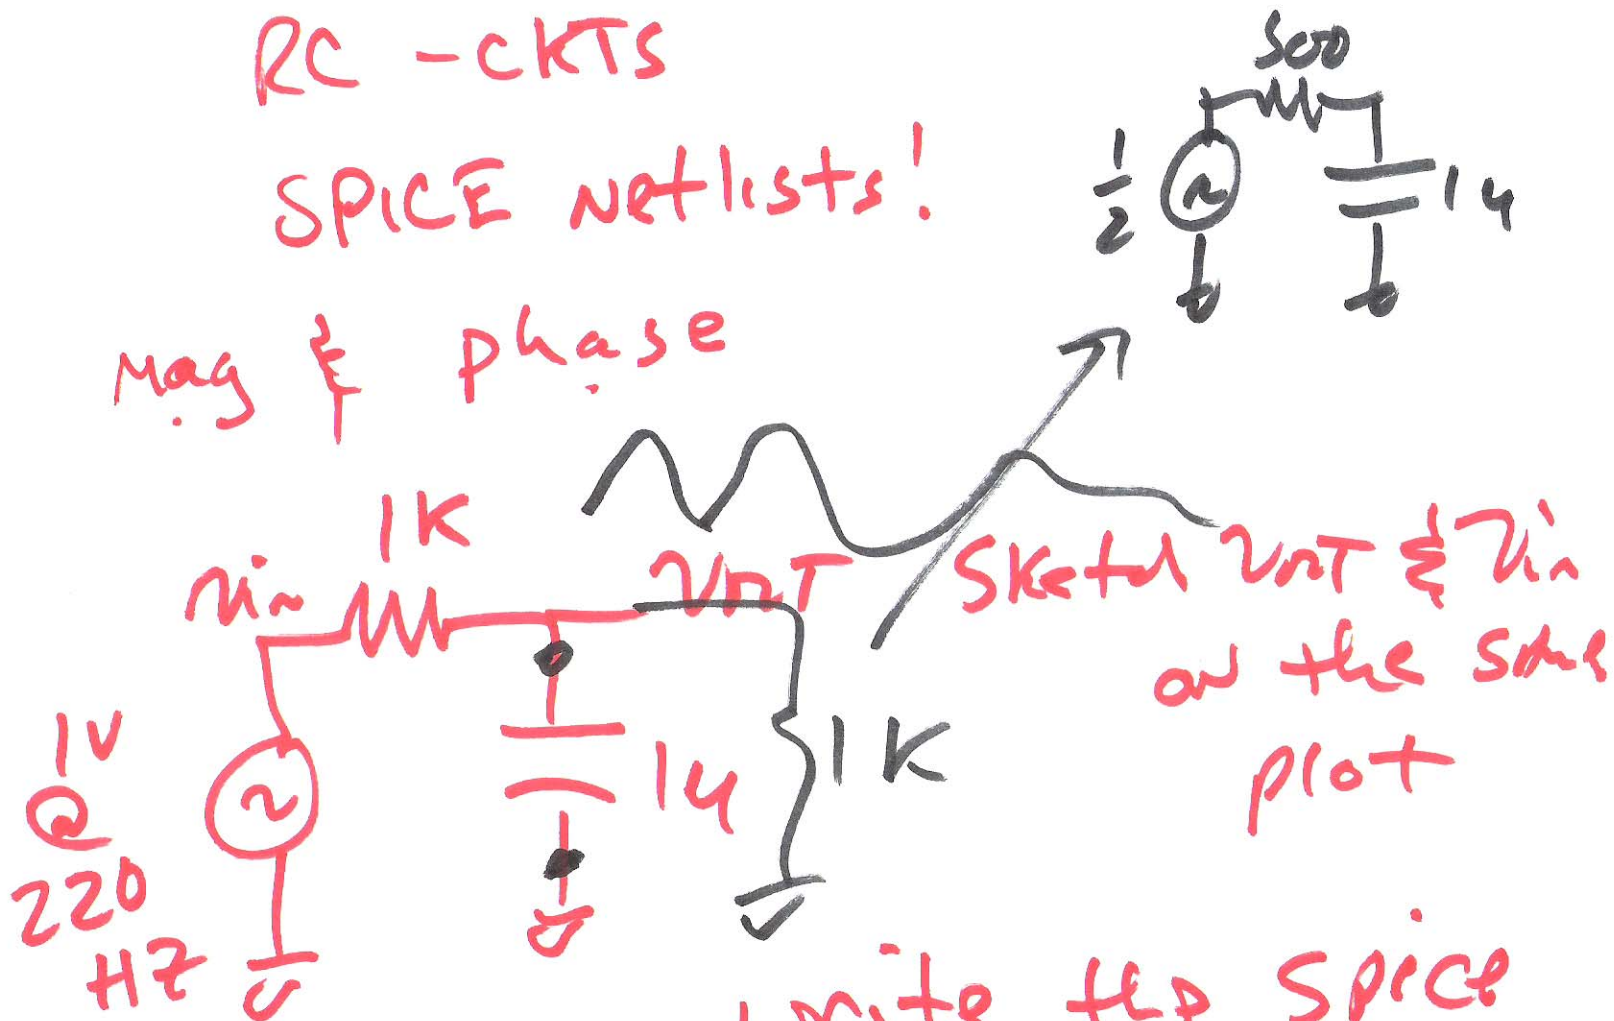 RC - CKTS
SPICE Netlists!
Mag & phase
500
1/2
1u
1K
Vin
VOUT
1V
@
220
HZ
1u
1K
Sketch VOUT & Vin
on the same
plot
write the Spice